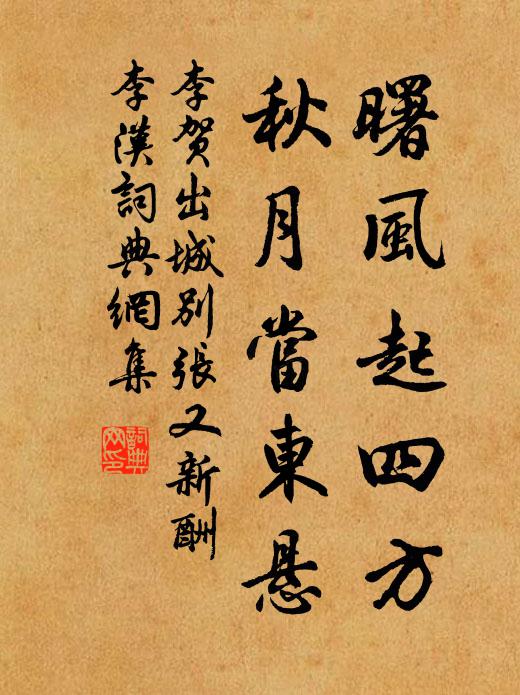 曙風起四方
秋月當東懸
李賀出城別張又新酬
李漢詞典網集
詞典
网印